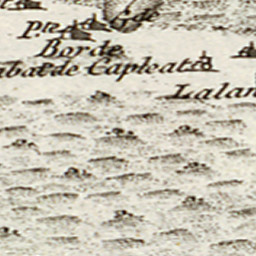 Pte
Borde
de Capleat
Lalan